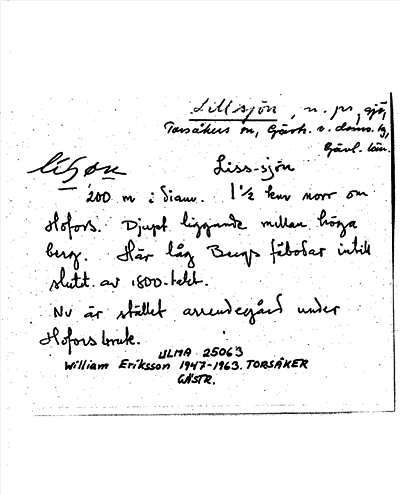 Lillsjön, n. pr, sjö,
Torsåkers sn, Gästr. v. doms. tg,
Gävl. län.
Liss-sjön
200 m i diam. 1 1/2 km norr om
Hofors. Djupt liggande mellan höga
berg. Här låg Bergs fäbodar intill
slutet av 1800-talet.
Nu är stället arrendegård under
Hofors bruk.
ULMA 25063
William Eriksson 1947-1963. TORSÅKER
GÄSTR.